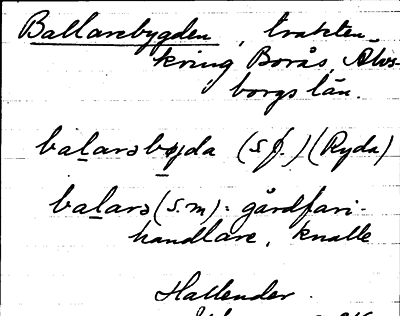 Ballarebygden, trakten
kring Borås, Älvs-
borgs län.
balarəbygda (s.f.) (Ryda)
balarə (s.m): gårdfari-
handlare, knalle
Hallender